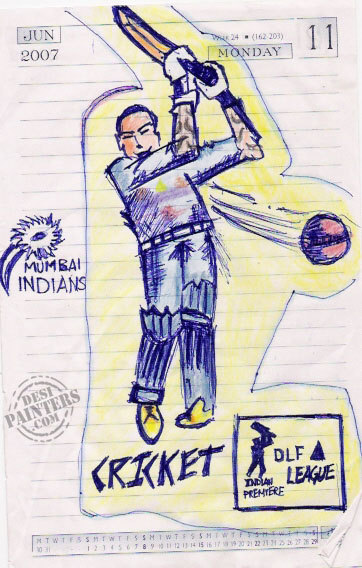 JUN
2007
WEEK 24 • (162-203)
MONDAY
11
MUMBAI
INDIANS
DESI
PAINTERS
.COM
CRICKET
DLF
LEAGUE
INDIAN
PREMIERE
M T W T F S S M T W T F S S M T W T F S S M T W T F S S